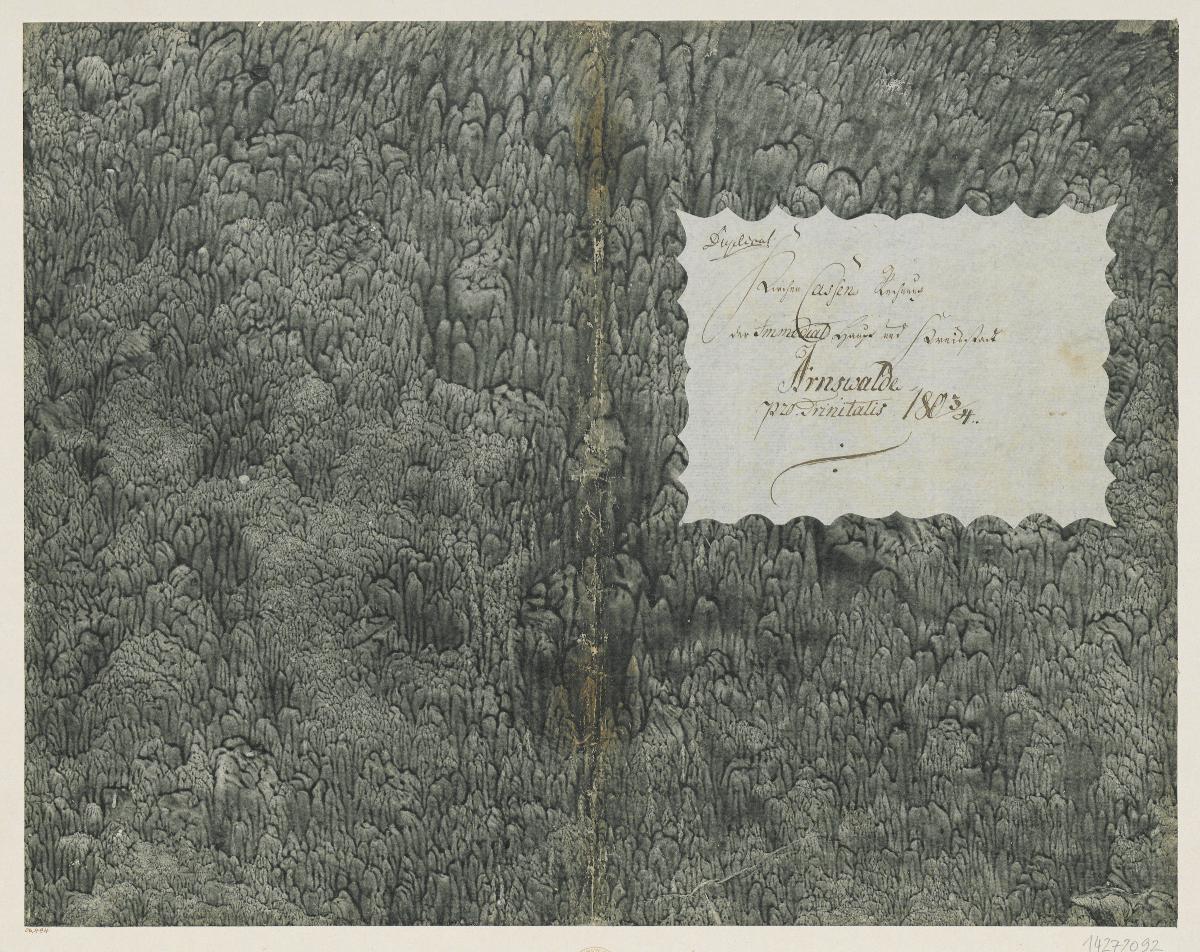 Duplicat
Kirchen Cassen Rechnung
der Immediat Haupt und Creisstadt
Arnswalde
pro Trinitatis 180 3/4.
14272092